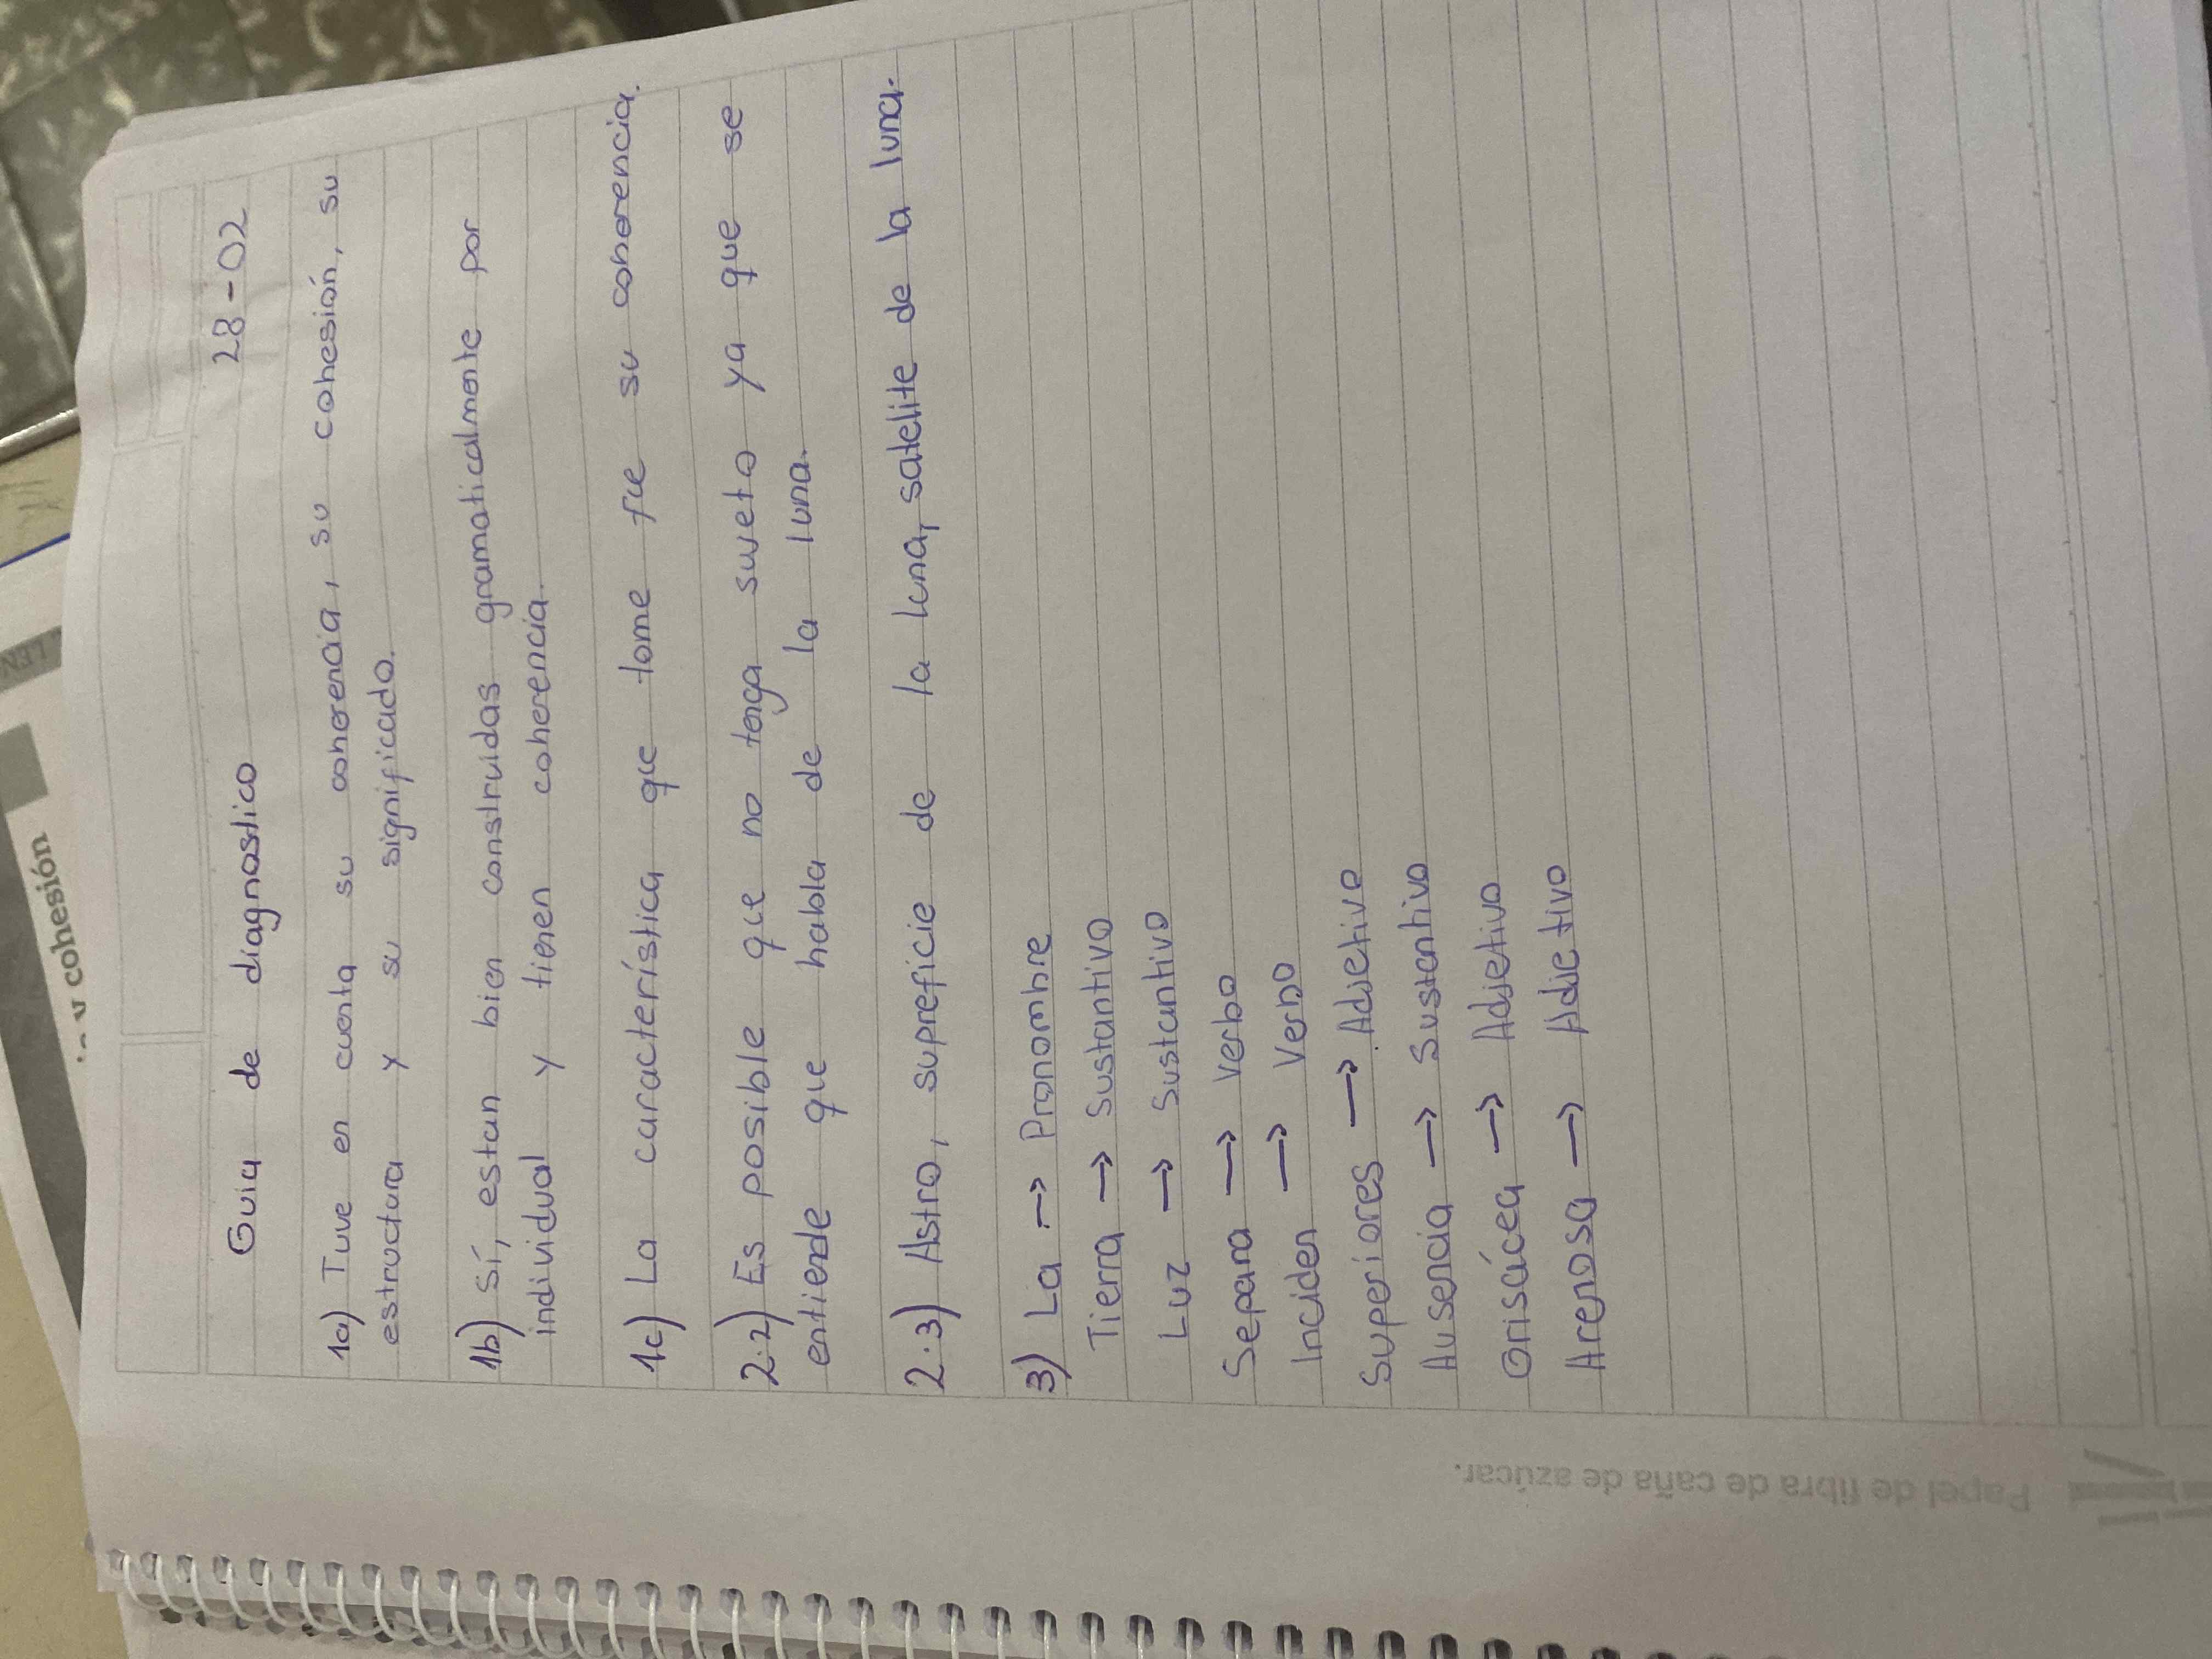 Guia de diagnostico 28-02
1a) Tuve en cuenta su coherencia, su cohesión, su
estructura y su significado.
1b) Sí, estan bien construidas gramaticalmente por
individual y tienen coherencia.
1c) La característica que tome fue su coherencia.
2.2) Es posible que no tenga sujeto ya que se
entiende que habla de la luna.
2.3) Astro, supreficie de la luna, satelite de la luna.
3) La → Pronombre
Tierra → Sustantivo
Luz → Sustantivo
Separa → Verbo
Inciden → Verbo
Superiores → Adjetivo
Ausencia → Sustantivo
Grisácea → Adjetivo
Arenosa → Adjetivo
Papel de fibra de caña de azúcar.
y cohesión
LEN